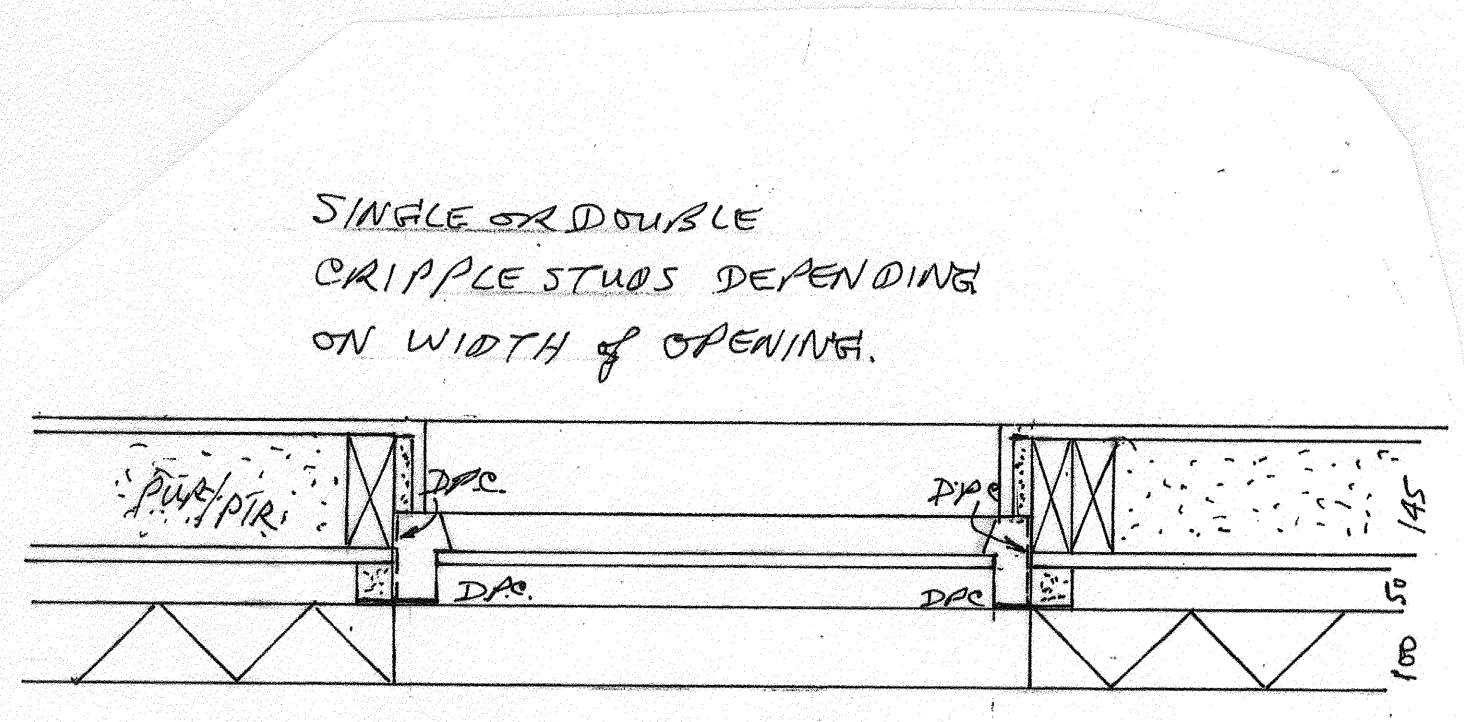 SINGLE OR DOUBLE
CRIPPLE STUDS DEPENDING
ON WIDTH of OPENING.
PUR/PIR.
D.P.C.
D.P.C
145
D.P.C.
DPC
50
100